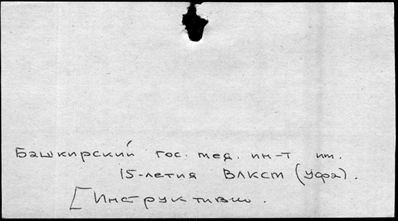 Башкирский гос. мед. ин-т им.
15-летия ВЛКСМ (Уфа).
[Инструктивно.